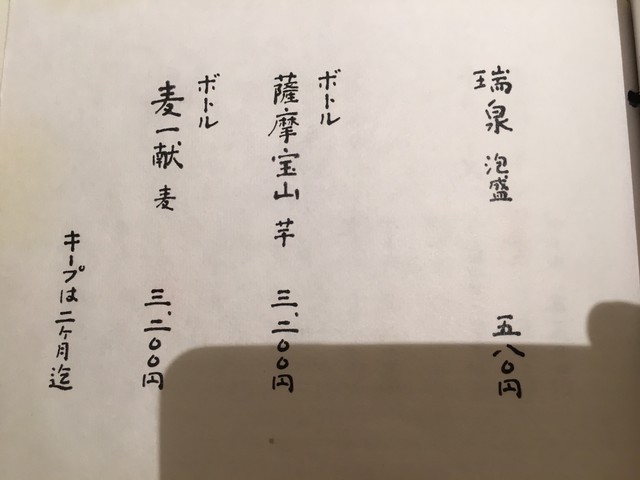 瑞泉 泡盛 五八〇円
ボトル
薩摩宝山 芋 三、二〇〇円
ボトル
麦一献 麦 三、二〇〇円
キープは二ヶ月迄